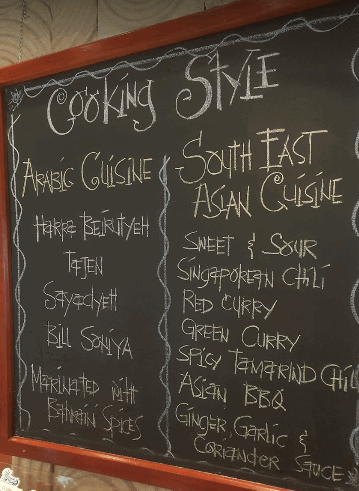 Cooking Style
Arabic Cuisine
Harra Beirutyeh
Tajen
Sayadyeh
Bill Soniya
Marinated with
Bahrain Spices
South East
Asian Cuisine
Sweet & Sour
Singaporean Chili
Red Curry
Green Curry
Spicy Tamarind Chili
Asian BBQ
Ginger, Garlic &
Coriander Sauce